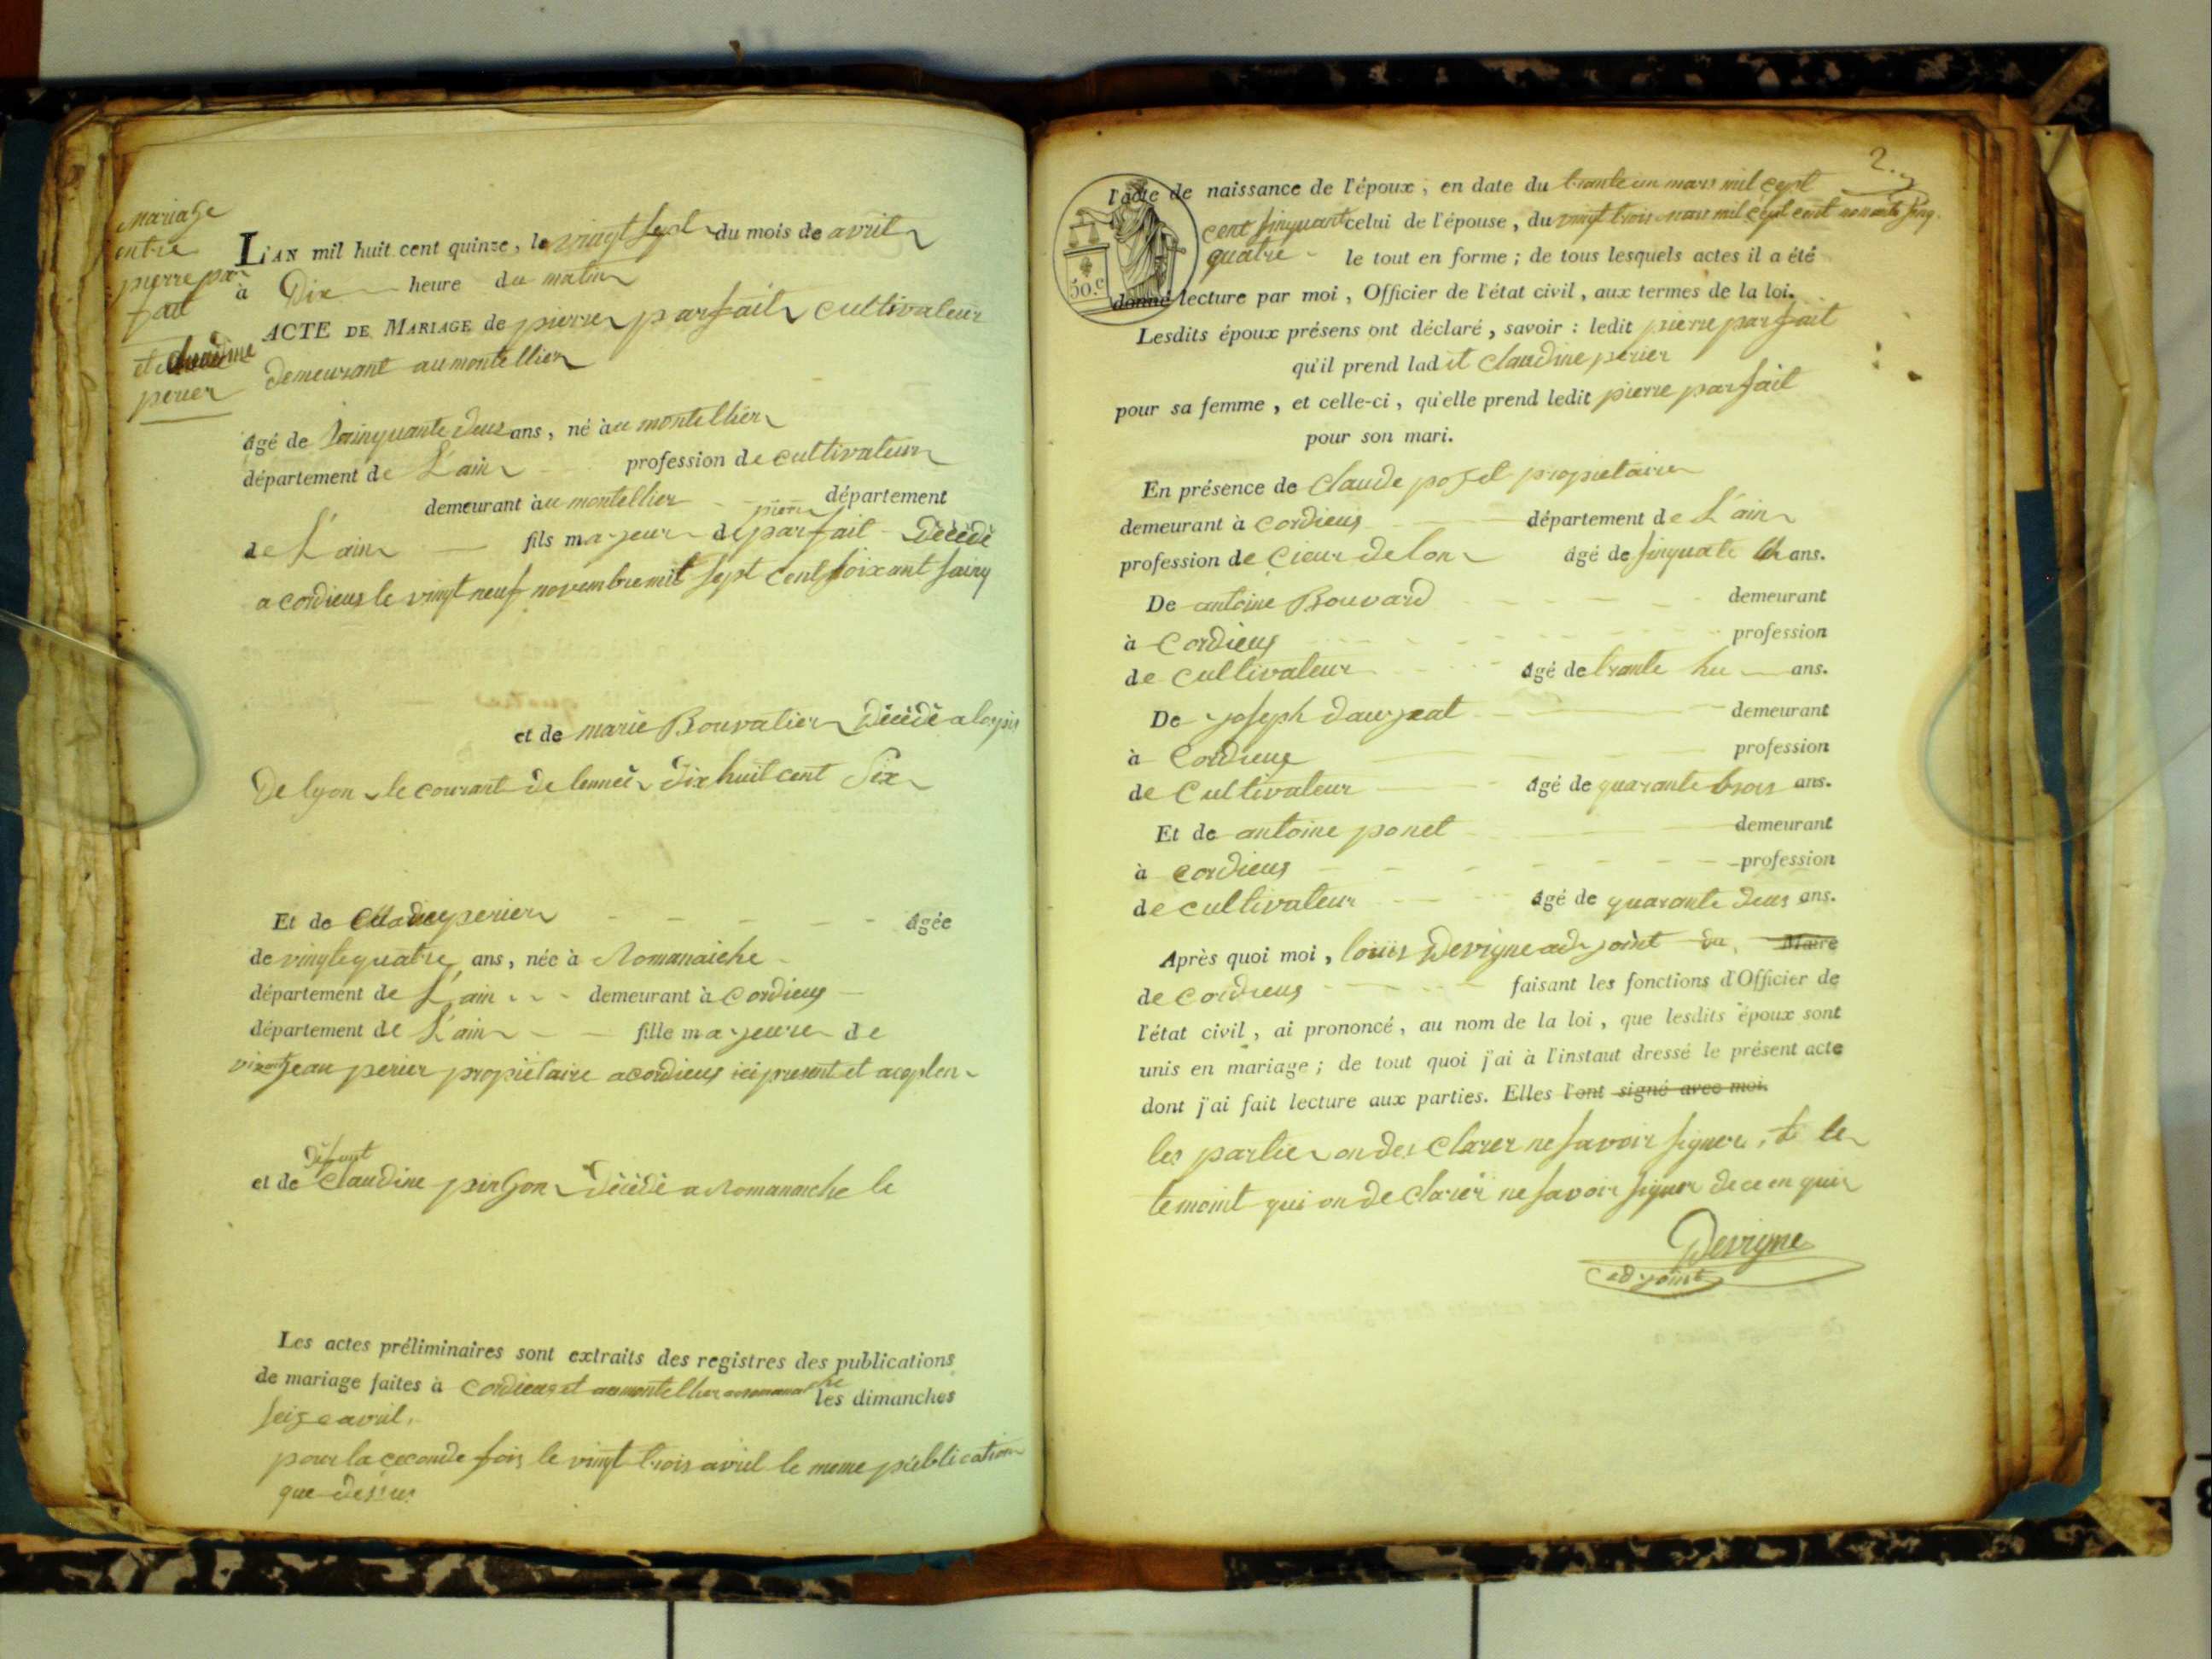 mariage
entre
pierre par
fait
et claudine
perier
L'AN mil huit cent quinze, le vingt sept du mois de avril
à Dix heure du matin
ACTE DE MARIAGE de pierre parfait cultivateur
demeurant au montellier
âgé de sainquante deus ans, né à au montellier
département de L'ain profession de cultivateur
demeurant à au montellier département
de L'ain fils majeur de pierre parfait Décédé
a cordieus le vingt neuf novembre mil sept cent soixant sainq
et de marie Bouvatier Décédé a lopis
De lyon le courant de lenneé dix huit cent Six
Et de perier âgée
de vingtequatre ans, née à Romanaiche
département de L'ain demeurant à Cordieus
département de L'ain fille majeure de
jean perier propietaire a cordieus ici present et
et de défunt Claudine pinson Décédé a Romanaiche le
Les actes préliminaires sont extraits des registres des publications
de mariage faites à cordieus et au montellier a romanaiche les dimanches
seize avril.
pour la ceconde fois le vingt trois avril le meme publication
que dessus
2.
l'acte de naissance de l'époux, en date du trante un mars mil cept
cent sinquant celui de l'épouse, du vingt trois mars mil cept cent nonante sinq
quatre le tout en forme ; de tous lesquels actes il a été
50.c
donné lecture par moi, Officier de l'état civil, aux termes de la loi.
Lesdits époux présens ont déclaré, savoir : ledit pierre parfait
qu'il prend lad it Claudine perier
pour sa femme, et celle-ci, qu'elle prend ledit pierre parfait
pour son mari.
En présence de Claude poset propietaire
demeurant à Cordieus département de L'ain
profession de Cieur de lon âgé de sinquate ans.
De antoine Bouvard demeurant
à Cordieus profession
de cultivateur âgé de trante hu ans.
De joseph daujeat demeurant
à Cordieus profession
de Cultivateur âgé de quarante trois ans.
Et de antoine ponet demeurant
à cordieus profession
de cultivateur âgé de quarante deus ans.
Après quoi moi, louis Devigne adjoint du Maire
de Cordieus faisant les fonctions d'Officier de
l'état civil, ai prononcé, au nom de la loi, que lesdits époux sont
unis en mariage ; de tout quoi j'ai à l'instant dressé le présent acte
dont j'ai fait lecture aux parties. Elles l'ont signé avec moi.
les partie on de Clarer ne savoir signer, et le
temoint qui on de Clarer ne savoir signer de ce en quir
Devigne
adjoint